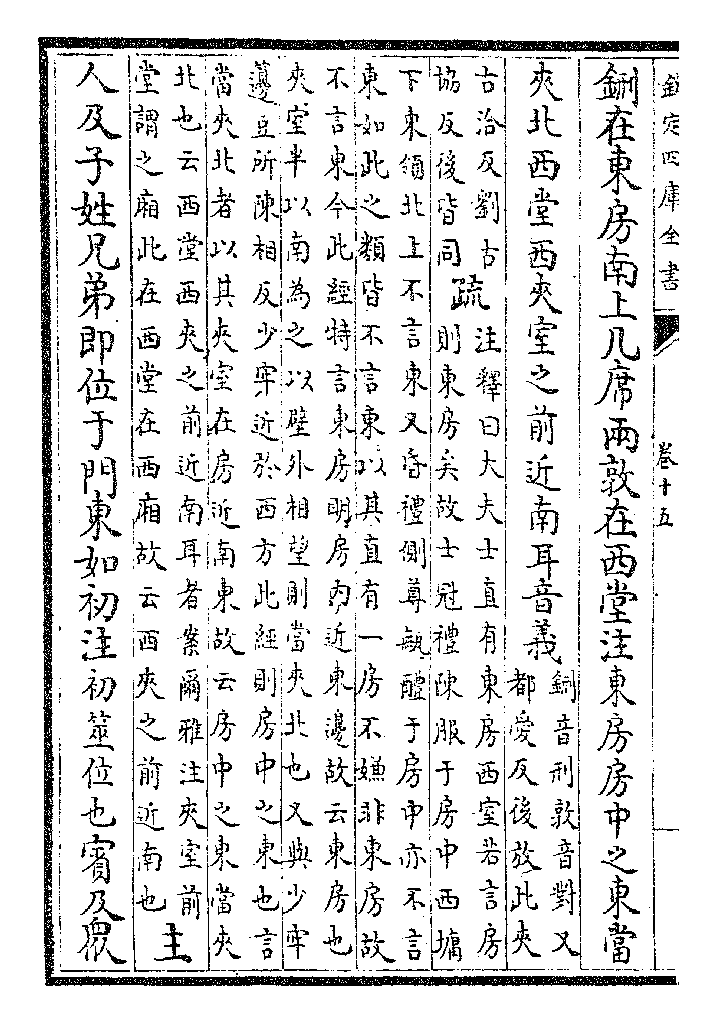 欽定四庫全書
卷十五
鉶在東房南上几席兩敦在西堂注東房房中之東當
夾北西堂西夾室之前近南耳音義鉶音刑敦音對又
都愛反後放此夾
古洽反劉古
協反後皆同疏注釋曰大夫士直有東房西室若言房
則東房矣故士冠禮陳服于房中西墉
下東領北上不言東又昏禮側尊甒醴于房中亦不言
東如此之類皆不言東以其直有一房不嫌非東房故
不言東今此經特言東房明房内近東邊故云東房也
夾室半以南為之以壁外相望則當夾北也又與少牢
籩豆所陳相反少牢近於西方此經則房中之東也言
當夾北者以其夾室在房近南東故云房中之東當夾
北也云西堂西夾之前近南耳者案爾雅注夾室前
堂謂之廂此在西堂在西廂故云西夾之前近南也主
人及子姓兄弟即位于門東如初注初筮位也賓及衆